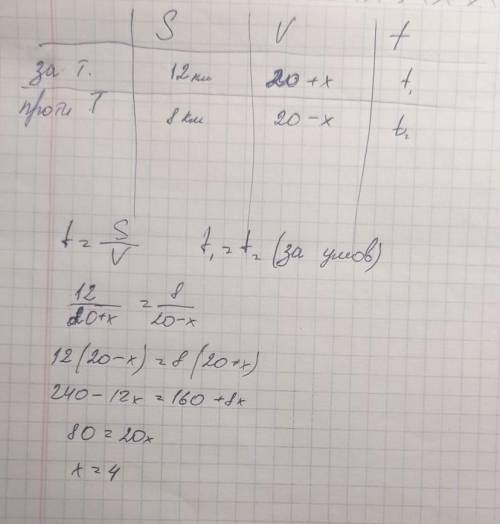 S V t
за т. 12 км 20+x t₁
проти Т 8 км 20-x t₂
t = S/V t₁ = t₂ (за умов)
12/20+x = 8/20-x
12(20-x) = 8(20+x)
240 - 12x = 160 + 8x
80 = 20x
x = 4